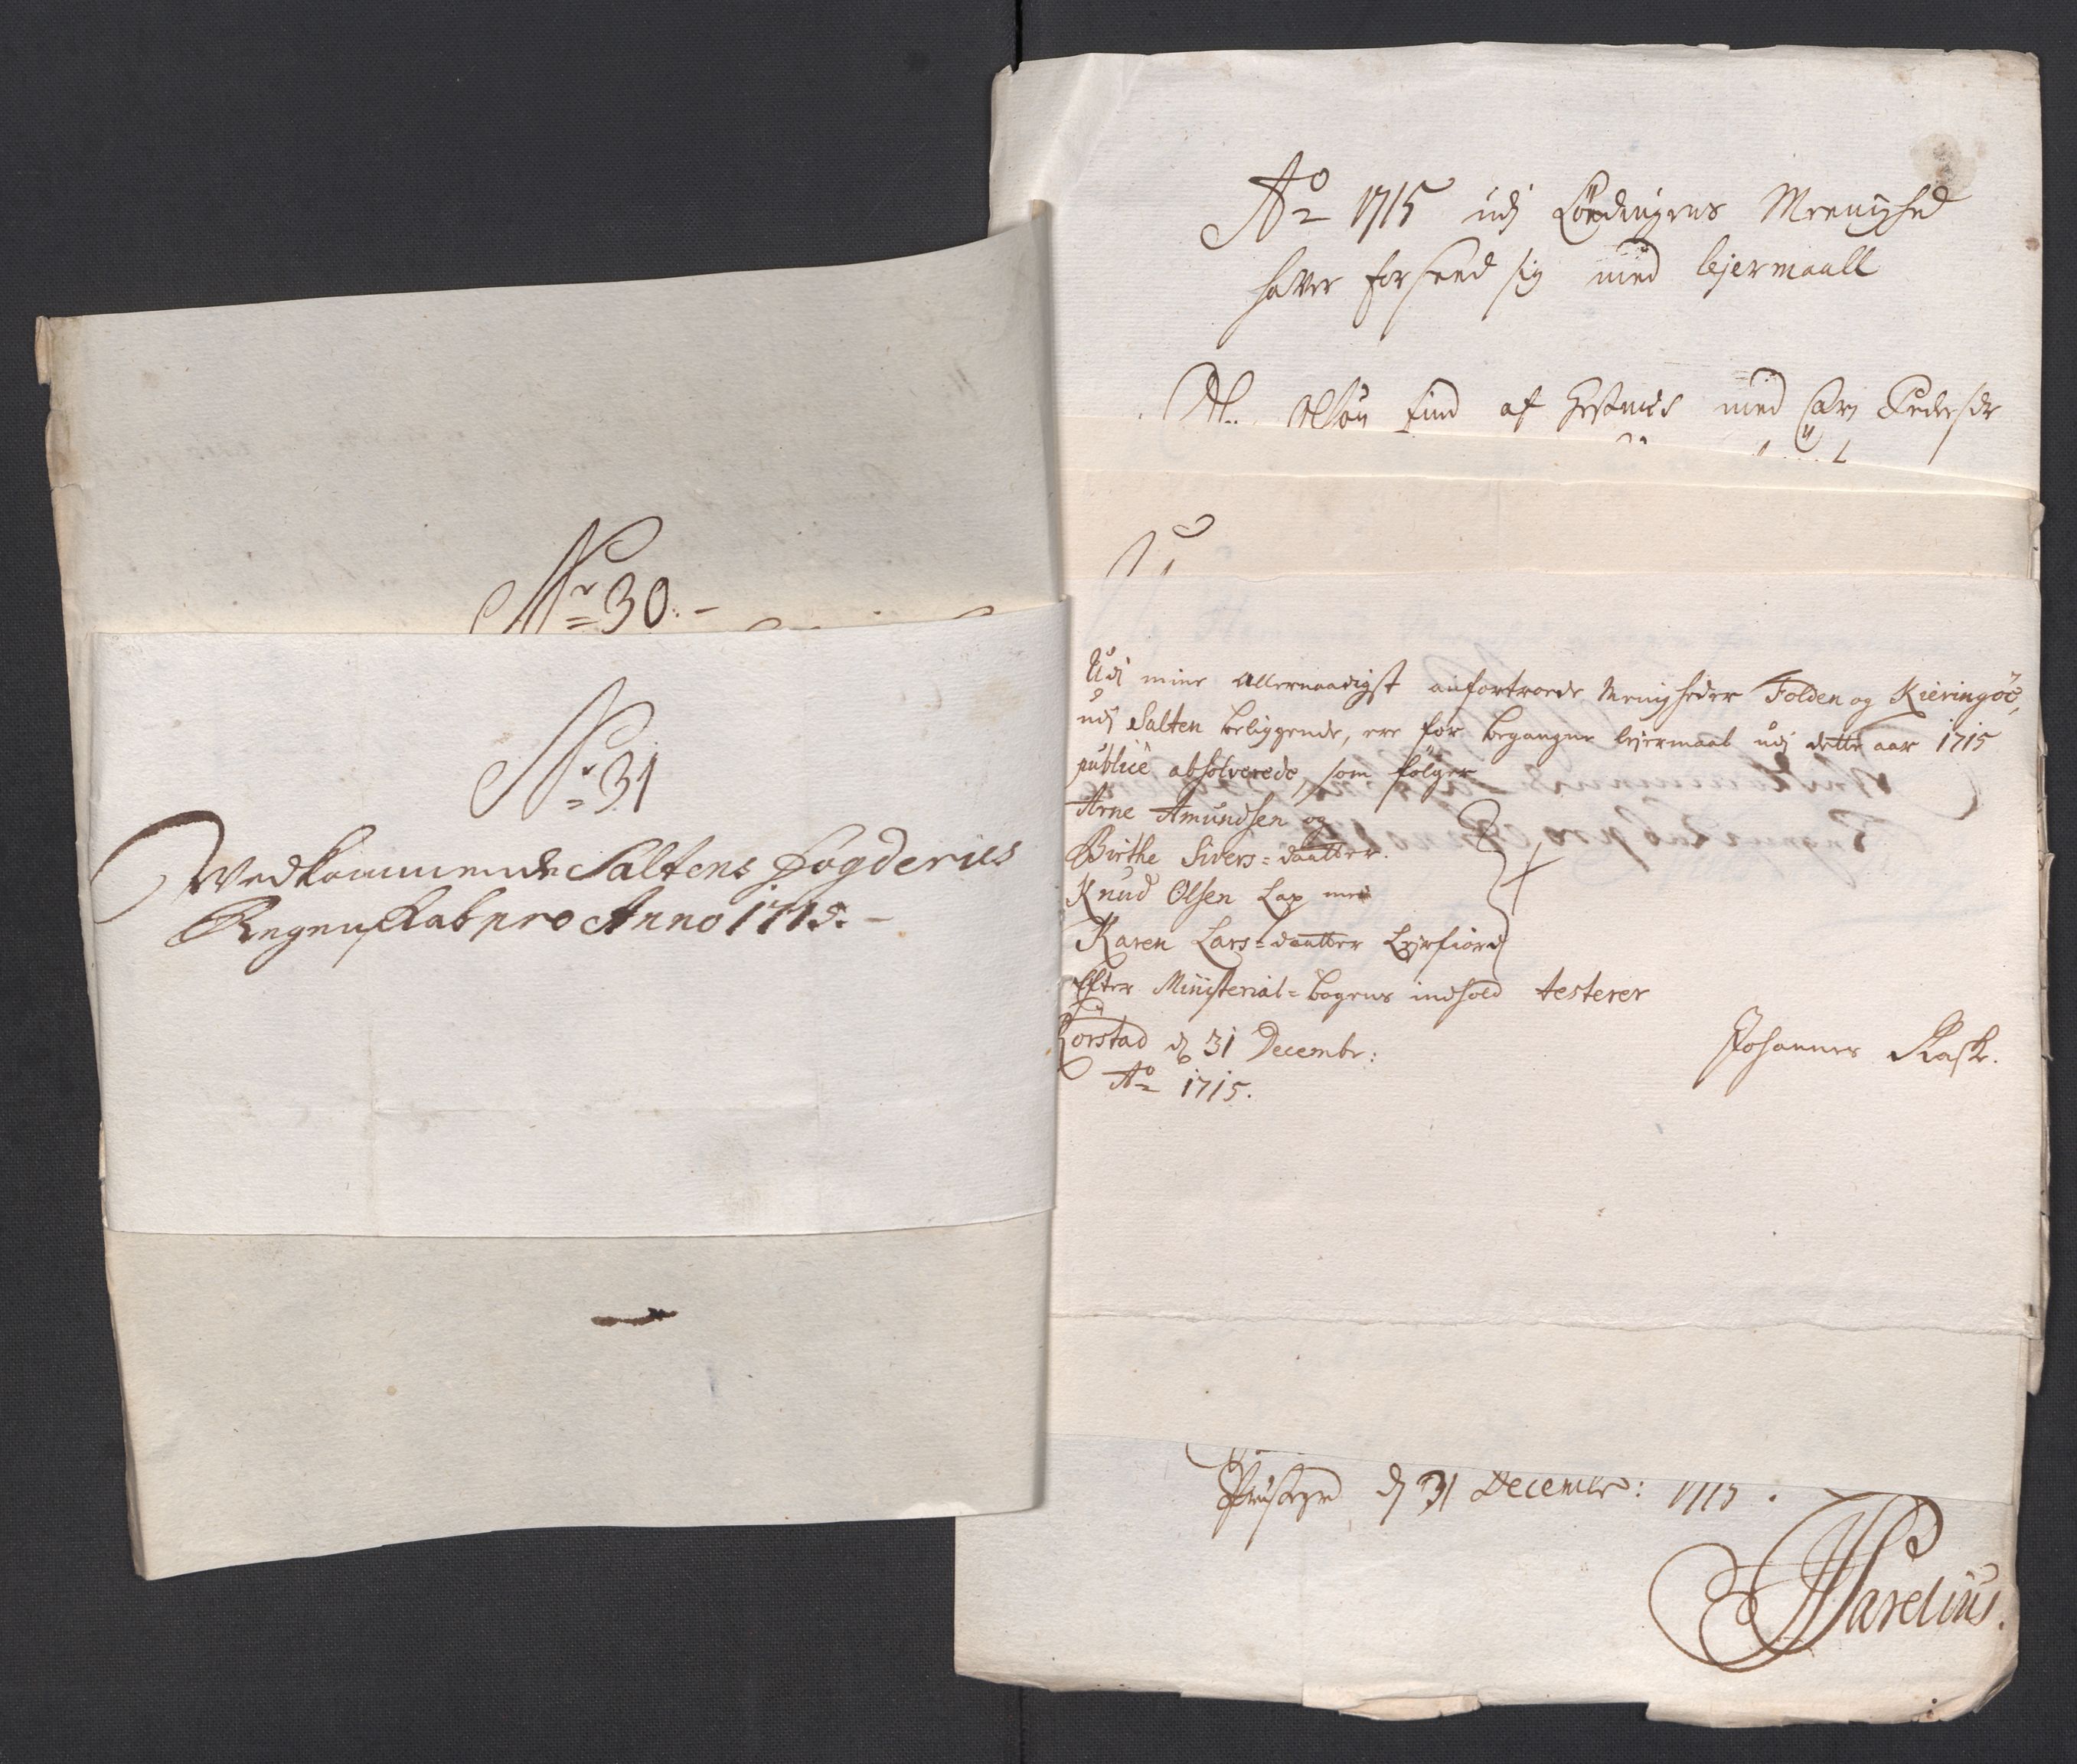 No 30.-
No 31
Vedkommende Saltens Fogderies
Regenskab pro Anno 1715.-
Ao 1715 udj Lødingens Meenighed
haver forseed sig med lejermaall
Olsøn Find af med Carj Pedersdr
Udj mine allernaadigst anfortroede Menigheder Folden og Kieringöe,
udj Salten beliggende, ere for begangne lejermaal udj dette aar 1715
publicè absolverede, som fölger
Arne Amundsen og
Birthe Sivers=daatter.
Knud Olsen Lap med
Karen Lars=daatter Lejrfiord
Efter Ministerial=bogens indhold testerer
Rörstad d 31 Decembr:
Ao 1715.
Johannes Rask.
d 31 Decembr: 1715.